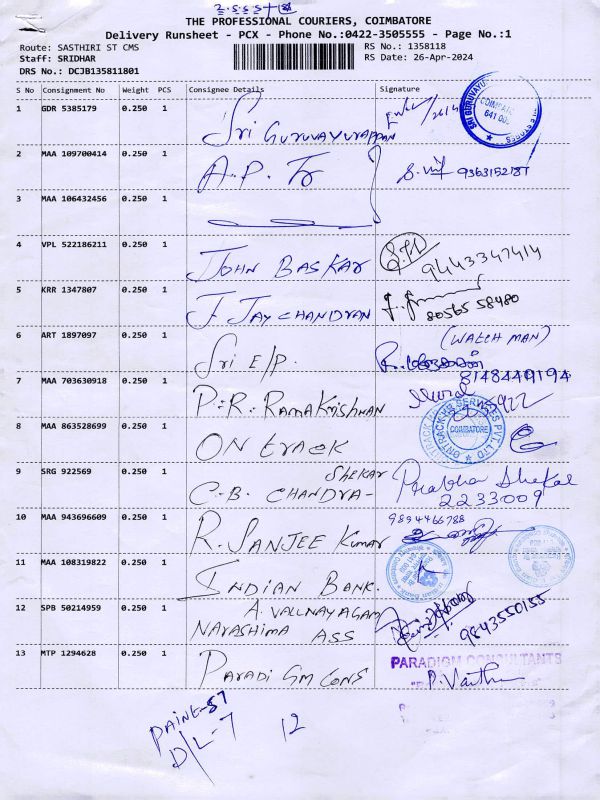 THE PROFESSIONAL COURIERS, COIMBATORE
Delivery Runsheet - PCX - Phone No.:0422-3505555 - Page No.:1
Route: SASTHIRI ST CMS
RS No.: 1358118
Staff: SRIDHAR
RS Date: 26-Apr-2024
DRS No.: DCJB135811801
S No Consignment No Weight PCS Consignee Details Signature
1 GDR 5385179 0.250 1 Sri Guruvayurappan
COIMBATORE
2 MAA 109700414 0.250 1 A.P. Tr 9363152187
3 MAA 106432456 0.250 1
4 VPL 522186211 0.250 1 John Baskar 9443347414
5 KRR 1347807 0.250 1 J. Jay chandran 80565 58480
6 ART 1897097 0.250 1 Sri E/P. (WATCH MAN)
8148449194
7 MAA 703630918 0.250 1 P.R. Ramakrishnan
8 MAA 863528699 0.250 1 ON track
COIMBATORE
9 SRG 922569 0.250 1 C.B. CHANDRA- Shekar Prabha Shekar
2233009
10 MAA 943696609 0.250 1 R. Sanjee Kumar 9894466788
11 MAA 108319822 0.250 1 Indian Bank.
12 SPB 50214959 0.250 1 A. VALLNAYAGAM
NARASHIMA ASS 9843550155
13 MTP 1294628 0.250 1 Paradi gm cons
PARADIGM CONSULTANTS
D/L-7 12